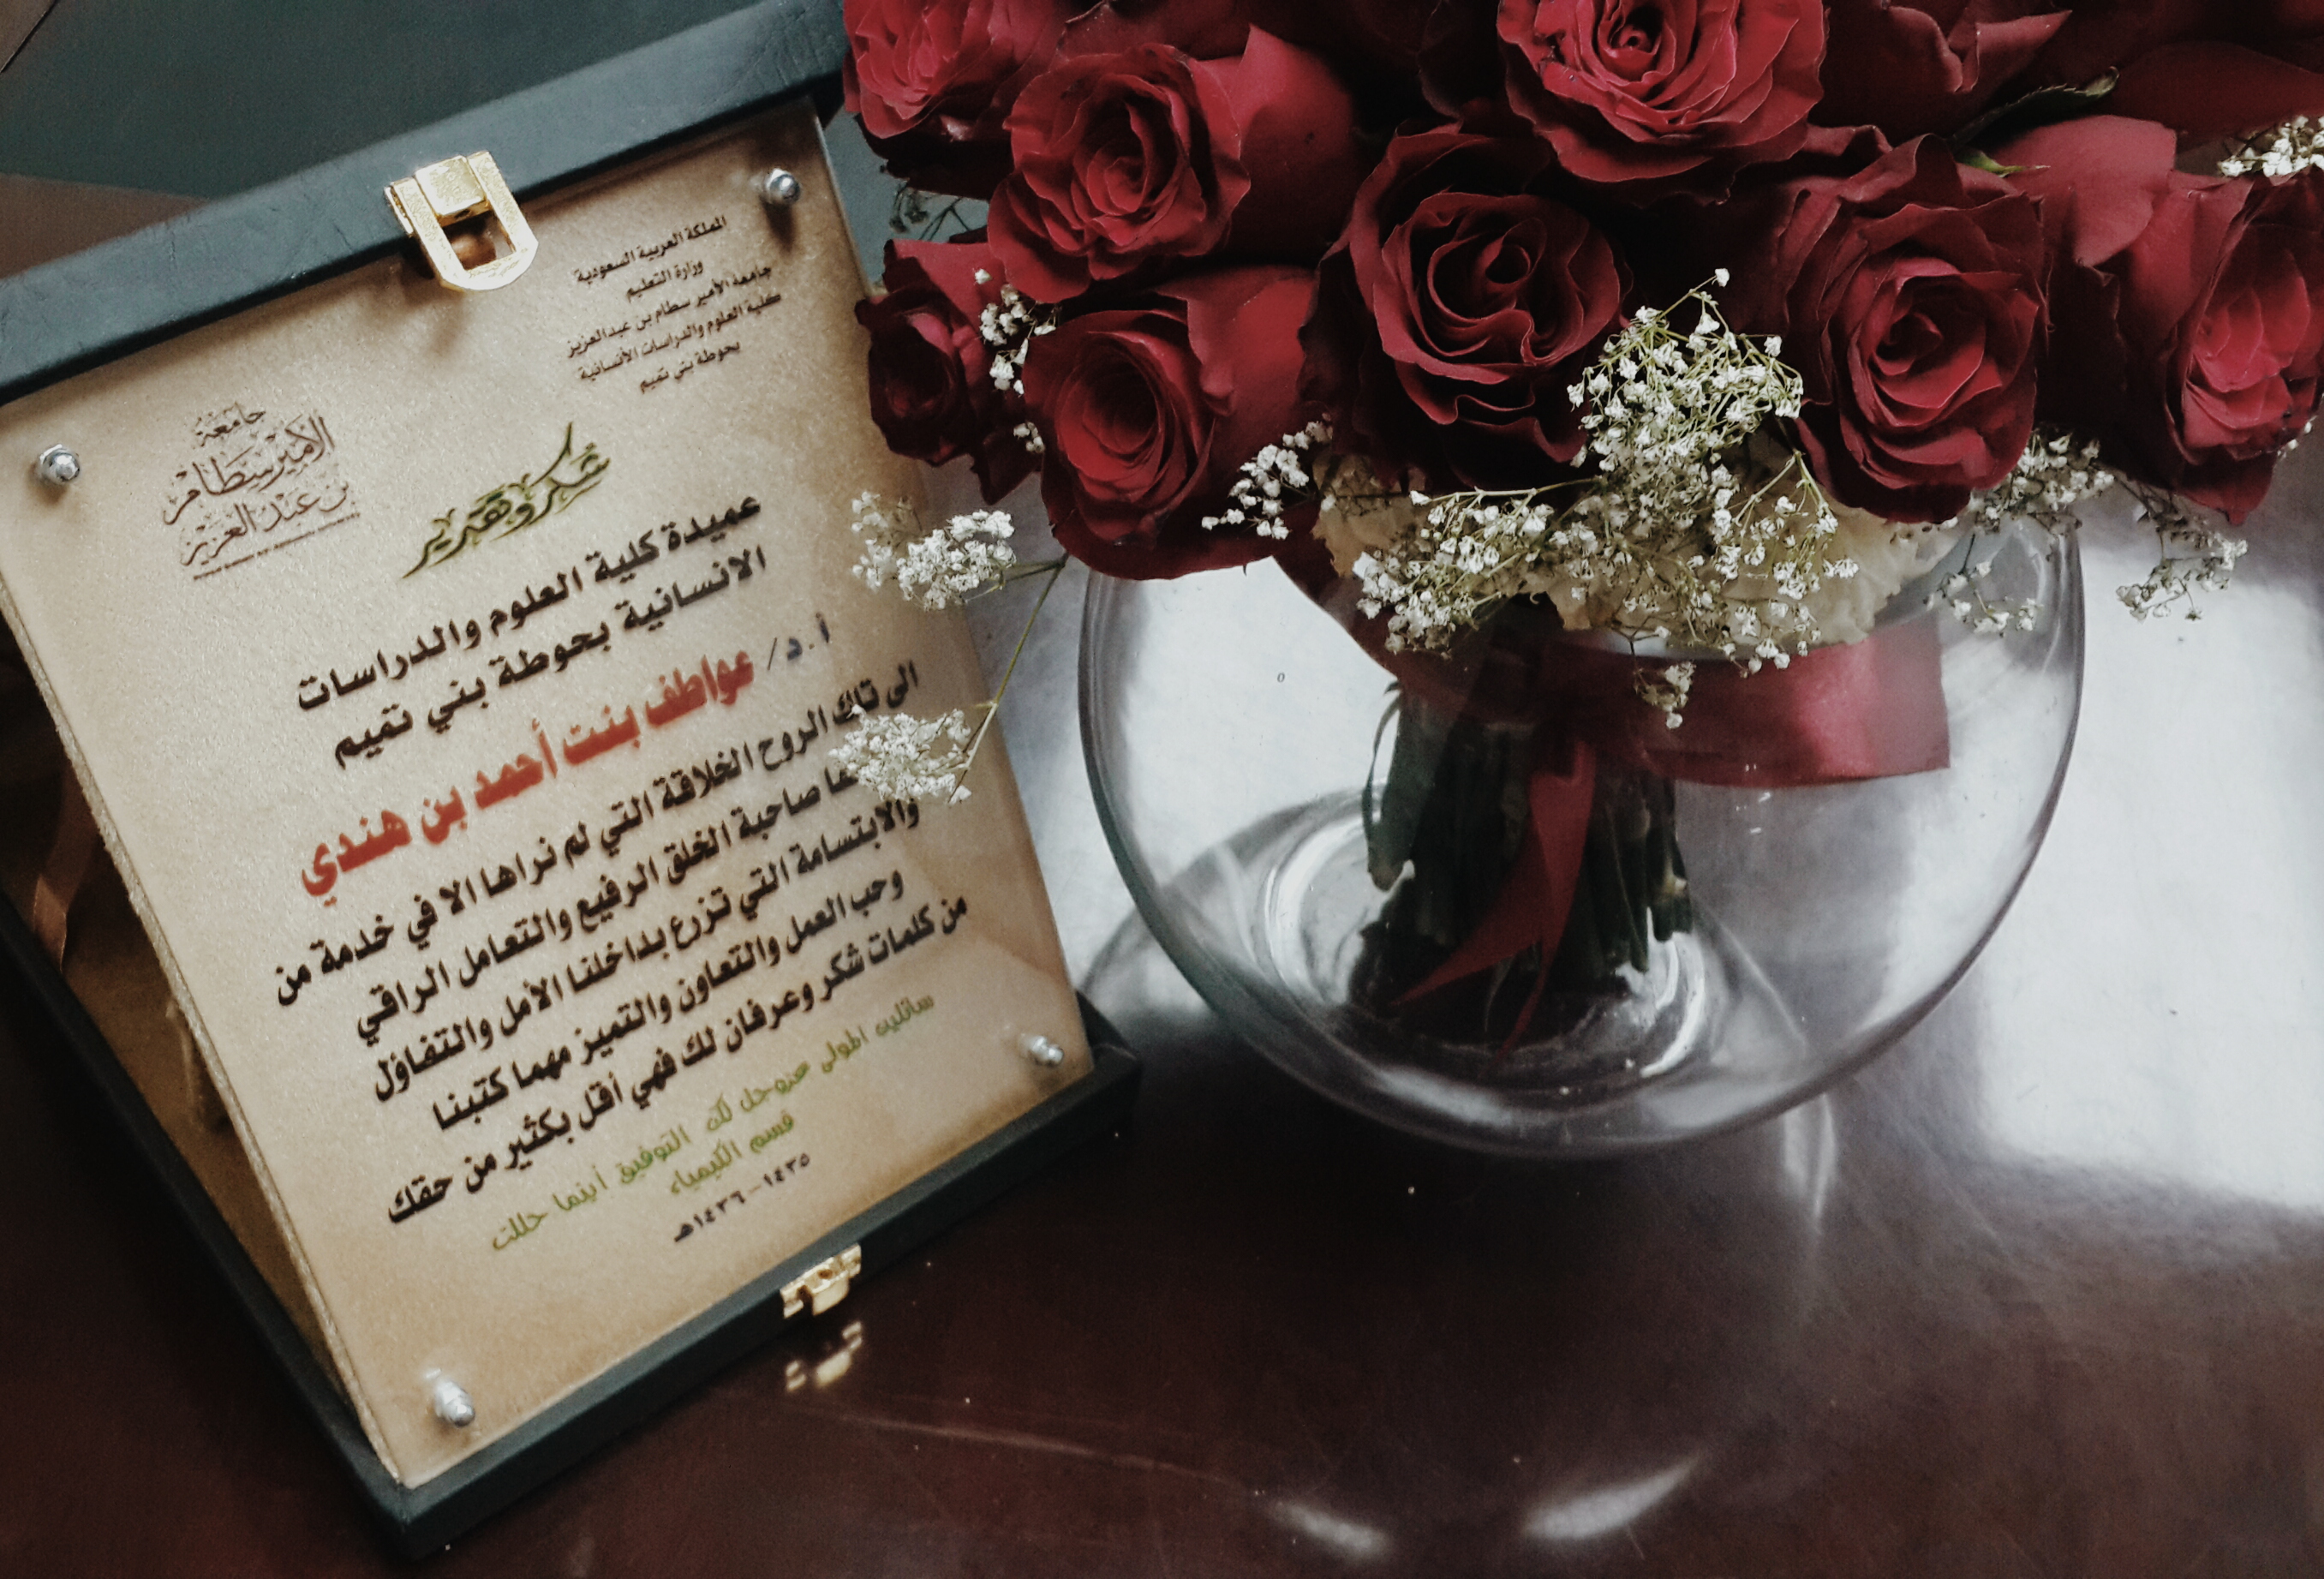 المملكة العربية السعودية
وزارة التعليم
جامعة الأمير سطام بن عبدالعزيز
كلية العلوم والدراسات الأنسانية
بحوطة بني تميم
جامعة
الأمير سطام
بن عبد العزيز
شكر وتقدير
عميدة كلية العلوم والدراسات
الانسانية بحوطة بني تميم
أ.د/ عواطف بنت أحمد بن هندي
الى تلك الروح الخلاقة التي لم نراها الا في خدمة من
صاحبة الخلق الرفيع والتعامل الراقي
والابتسامة التي تزرع بداخلنا الأمل والتفاؤل
وحب العمل والتعاون والتميز مهما كتبنا
من كلمات شكر وعرفان لك فهي أقل بكثير من حقك
سائلين المولى عزوجل لك التوفيق أينما حللت
قسم الكيمياء
١٤٣٥-١٤٣٦هـ